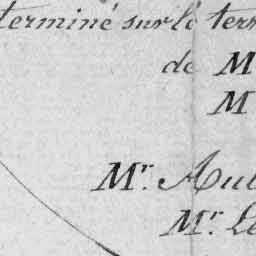 terminé sur le terr
de M
M
Mr. Aul
Mr. Le